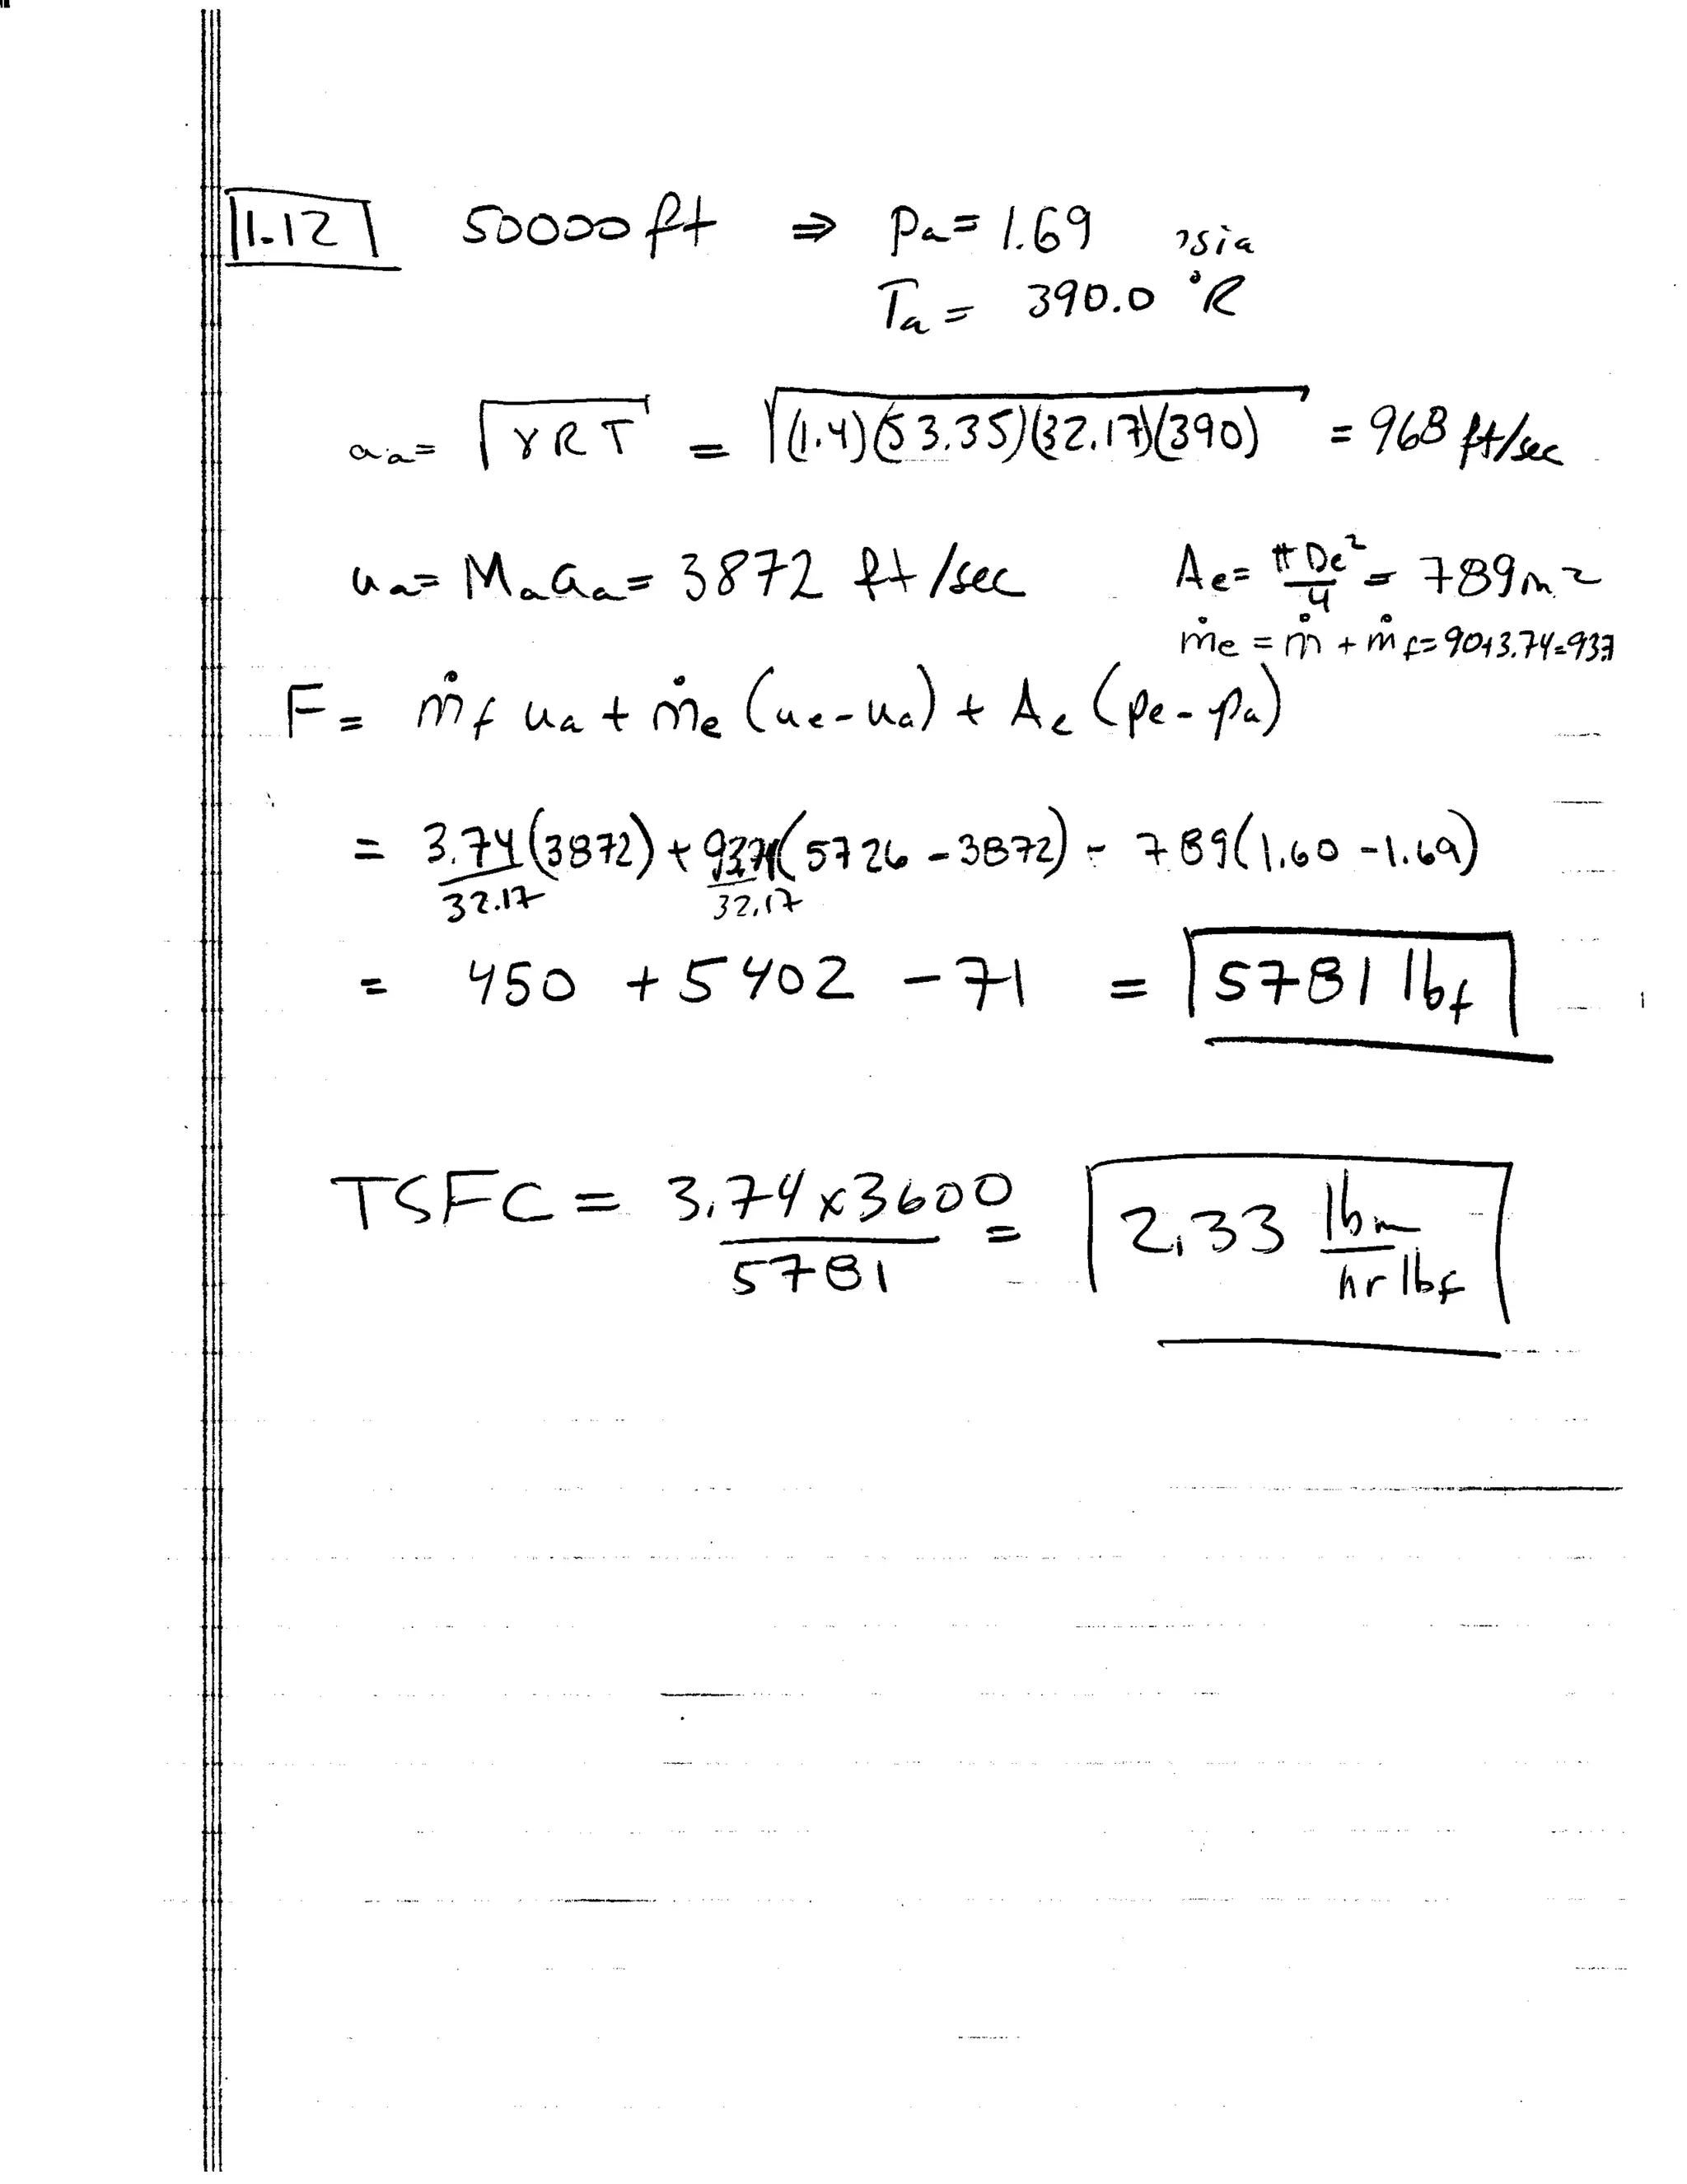 1.12 50000 ft ⇒ Pa = 1.69 psia
Ta = 390.0 °R
aa = √γRT = √(1.4)(53.35)(32.17)(390) = 968 ft/sec
ua = Ma aa = 3872 ft/sec Ae = πDe²/4 = 789 in²
ṁe = ṁ + ṁf = 90+3.74=93.7
F = ṁf ua + ṁe (ue - ua) + Ae (pe - pa)
= 3.74/32.17 (3872) + 93.74/32.17 (5726 - 3872) - 789(1.60 - 1.69)
= 450 + 5402 - 71 = 5781 lbf
TSFC = 3.74 x 3600 / 5781 = 2.33 lbm / hr lbf